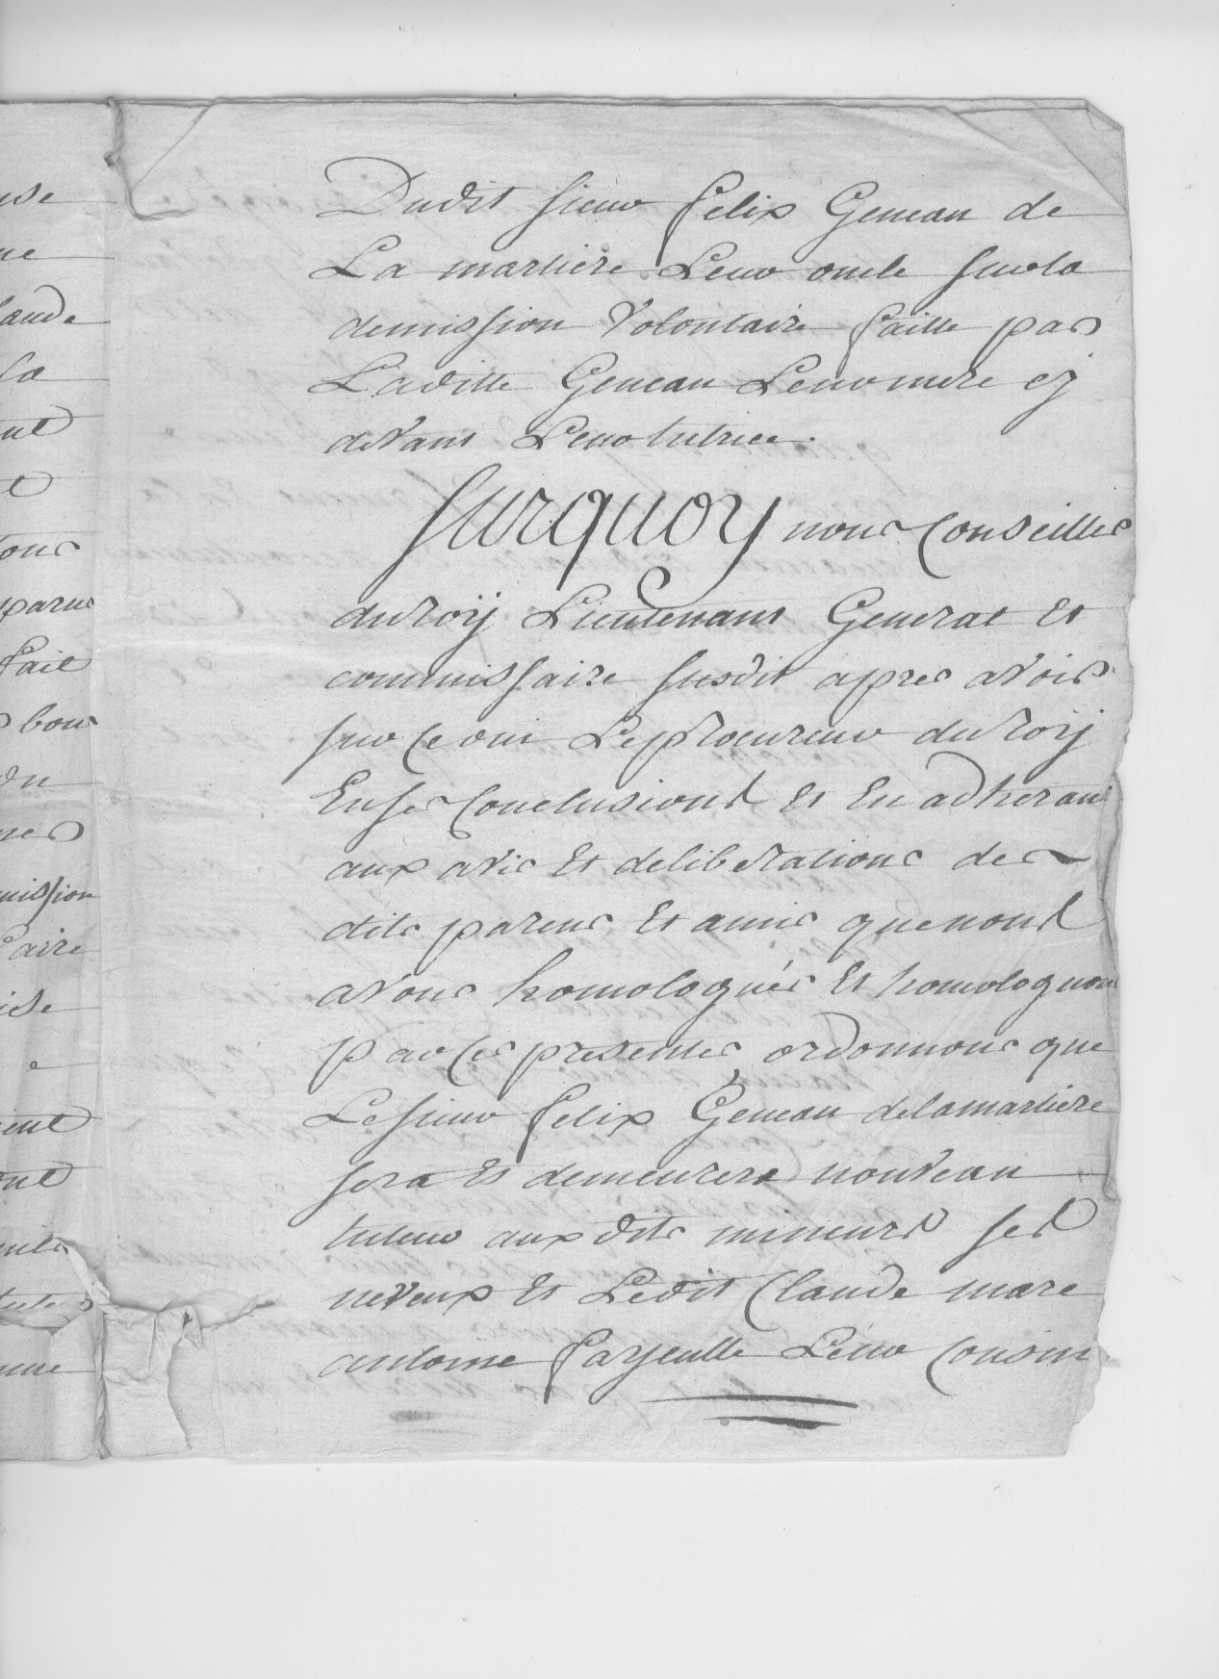 use
ne
laude
la
nt
t
ons
parus
fait
s bons
du
nes
mission
taire
ise
e
ent
ent
nts
tutes
nne
Dudit sieur felix Geneau de
La martiere Leur oncle sur la
demission Volontaire faitte par
Laditte Geneau Leur mere cy
devant Leur tutrice.
Surquoy nous Conseiller
du roy Lieutenant General Et
commissaire susdit apres avoir
sur Ce oui Le procureur du roy
En ses Conclusions Et En adherant
aux avis Et deliberations des
dits parens Et amis que nous
avons homologués Et homologuons
par Ces presentes ordonnons que
Le sieur felix Geneau de la martiere
sera Et demeurera nouveau
tuteur aux dits mineurs ses
neveux Et Ledit Claude marc
antoine fayeulle Leur Cousin